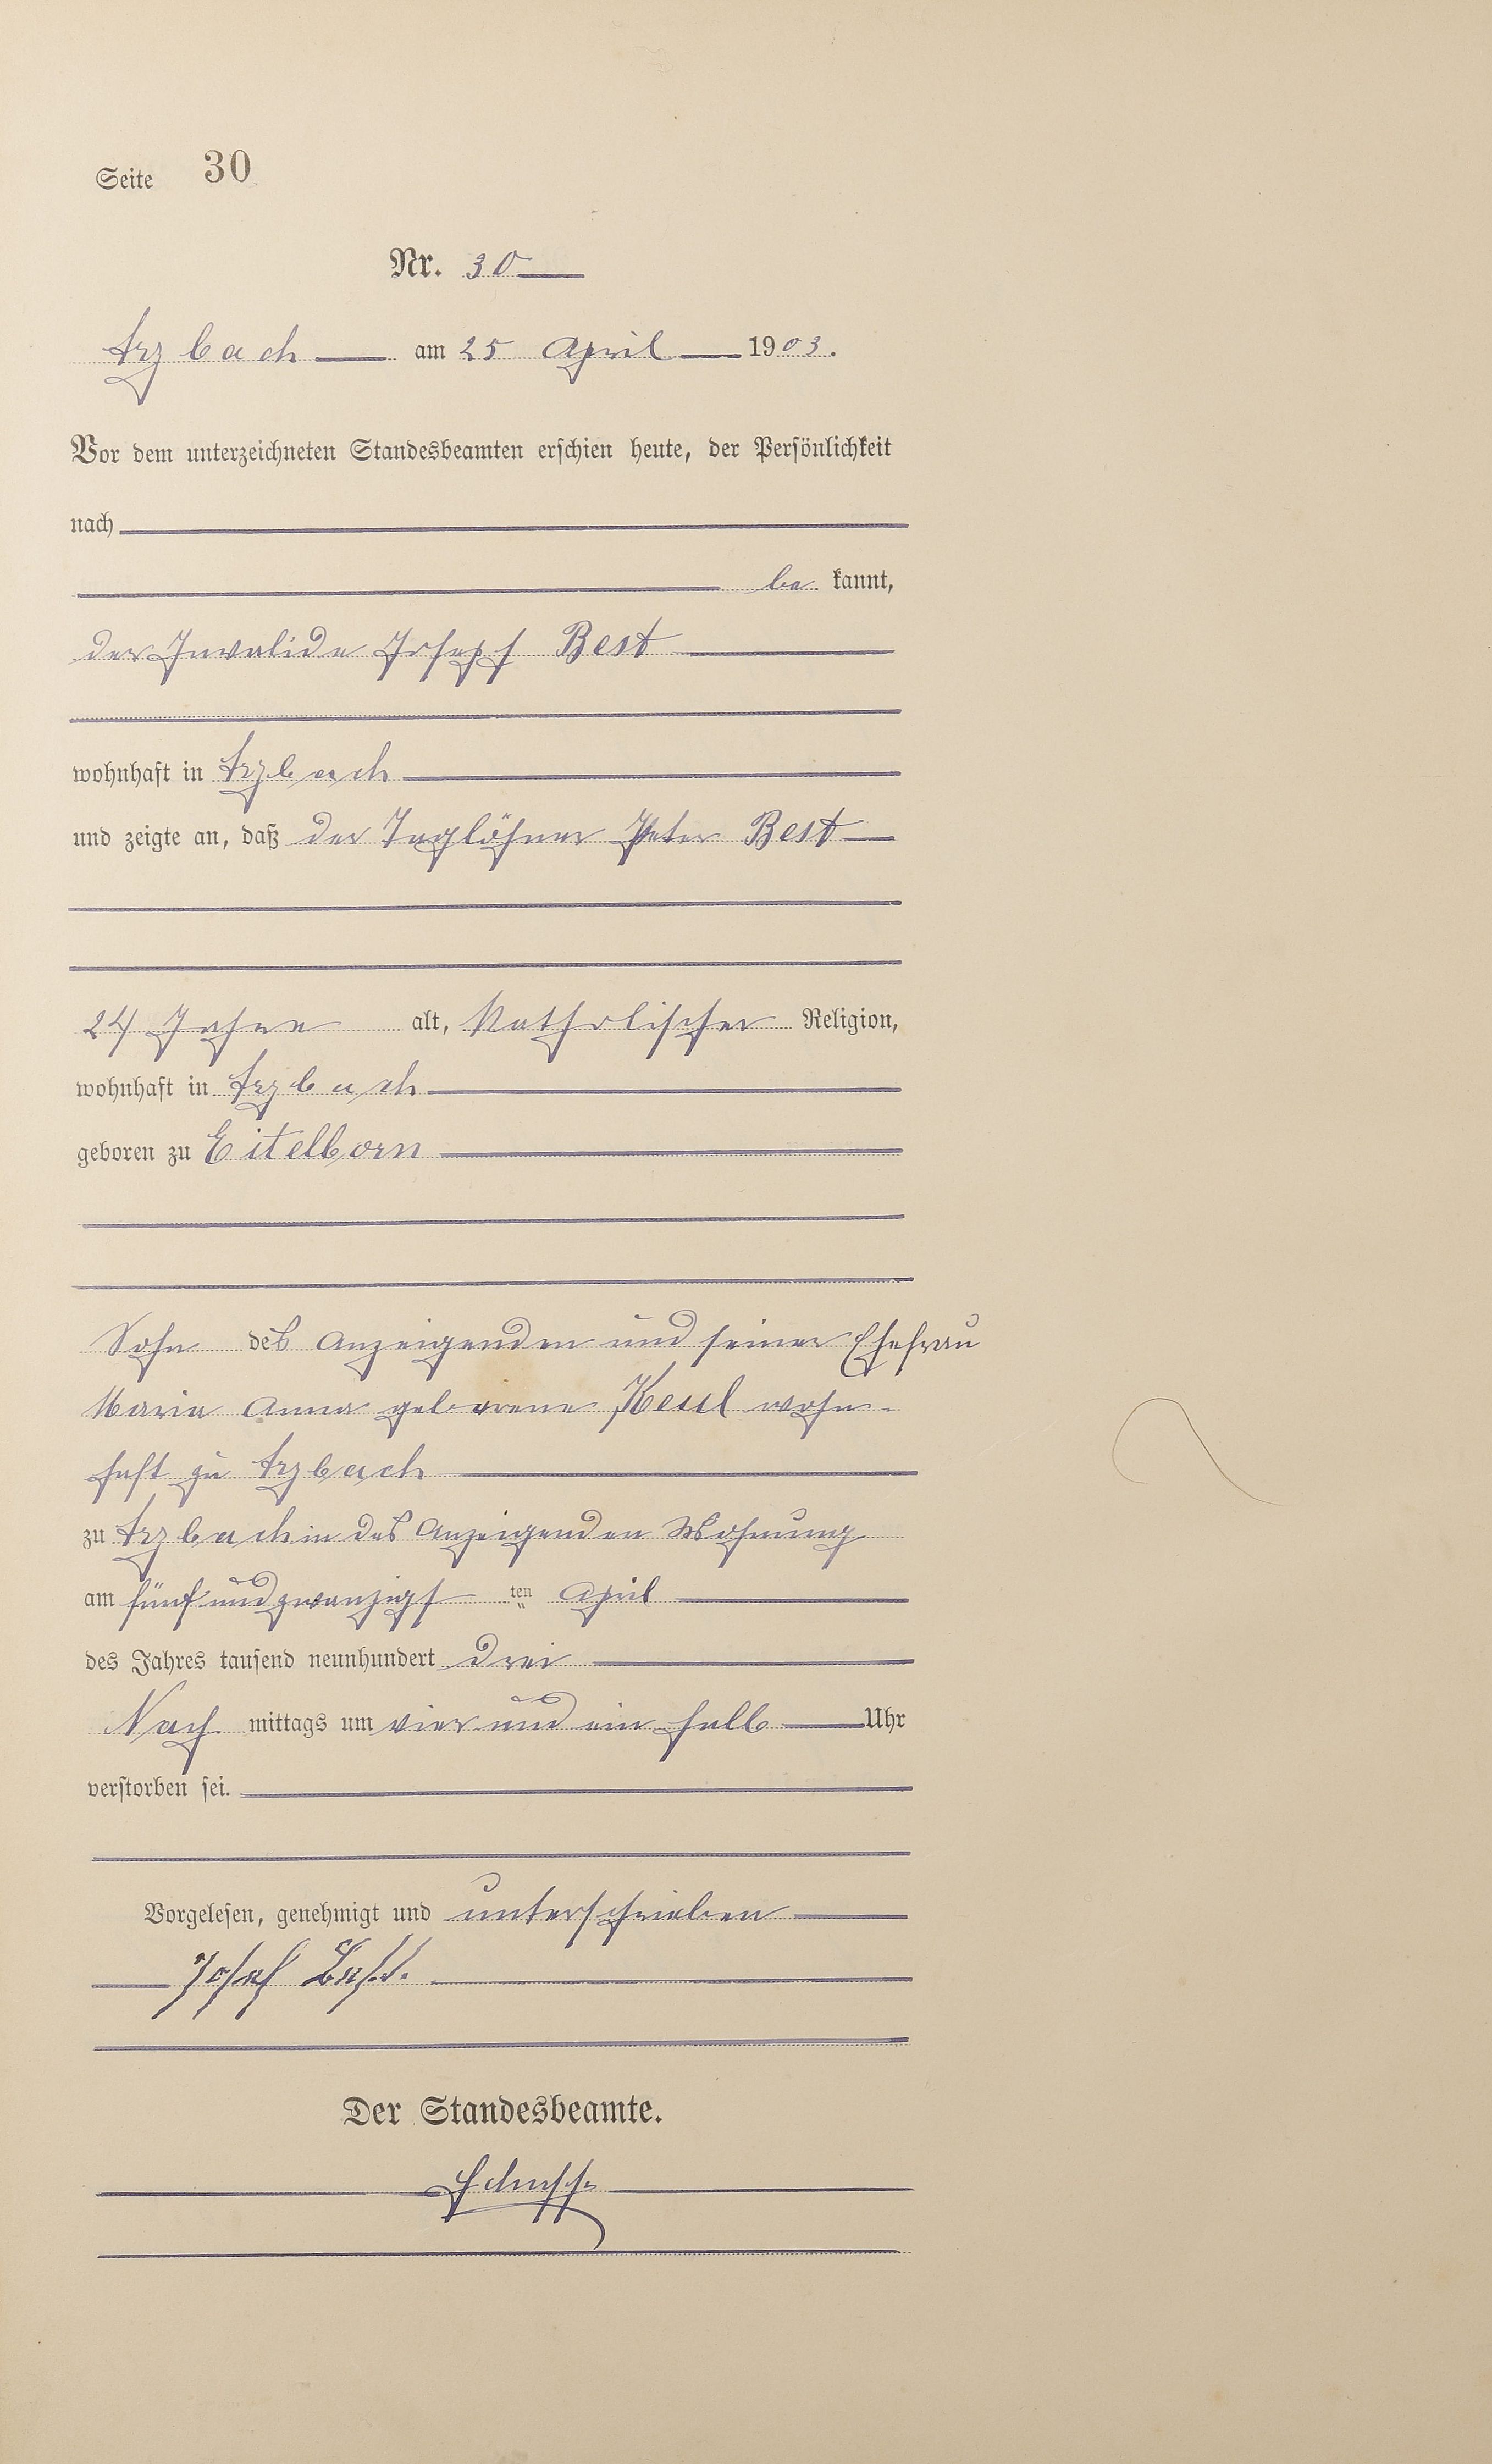 Seite 30
Nr. 30
Arzbach am 25 April 1903.
Vor dem unterzeichneten Standesbeamten erschien heute, der Persönlichkeit
nach
be kannt,
der Invalide Joseph Best
wohnhaft in Arzbach
und zeigte an, daß der Taglöhner Peter Best
24 Jahre alt, katholischer Religion,
wohnhaft in Arzbach
geboren zu Eitelborn
Sohn des Anzeigenden und seiner Ehefrau
Maria Anna geborene Keul wohn-
haft zu Arzbach
zu Arzbach in des Anzeigenden Wohnung
am fünf und zwanzigsten April
des Jahres tausend neunhundert drei
Nach mittags um vier und ein halb Uhr
verstorben sei.
Vorgelesen, genehmigt und unterschrieben
Josef Best.
Der Standesbeamte.